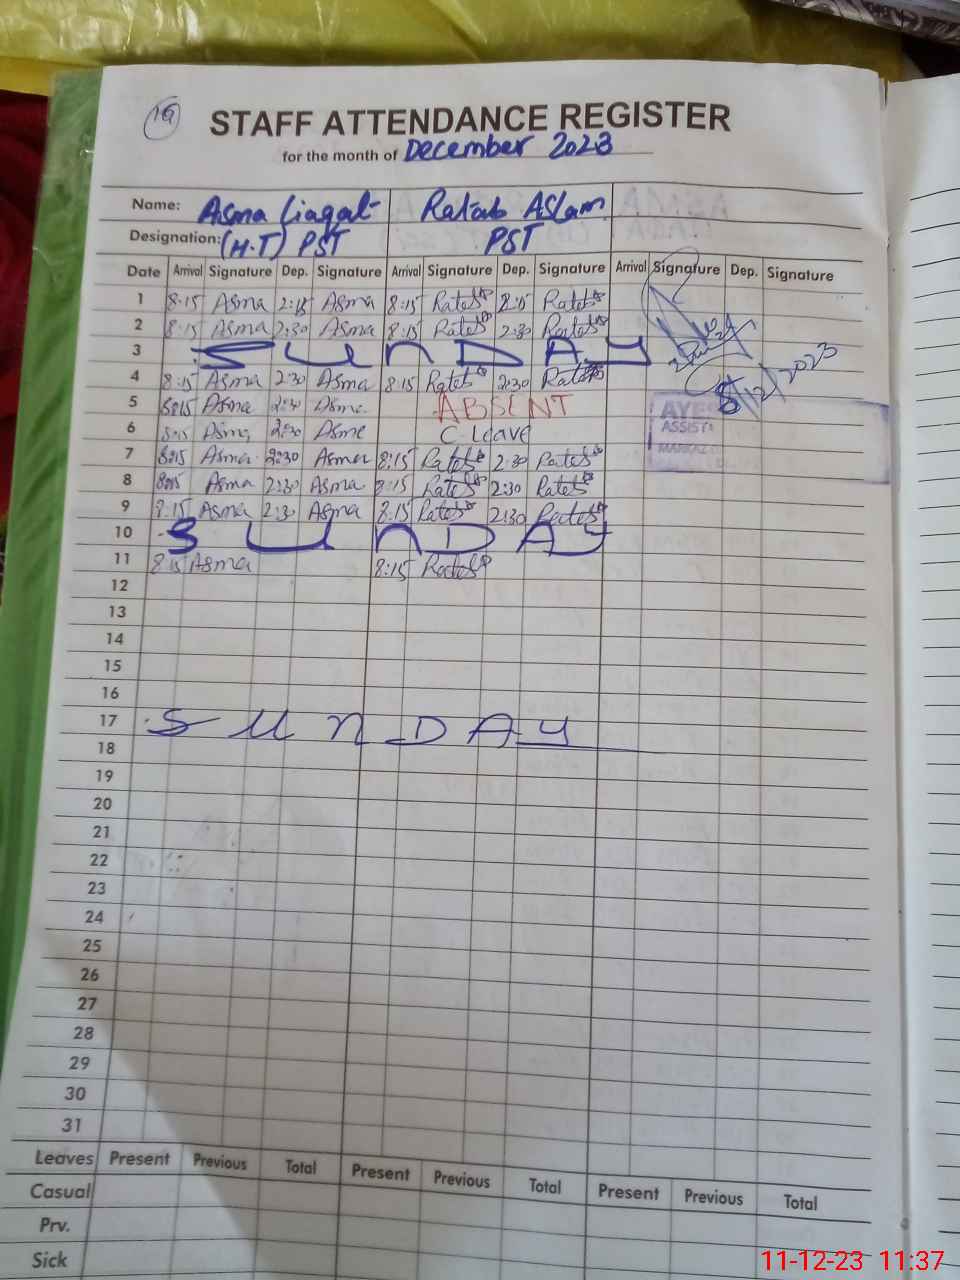 19
STAFF ATTENDANCE REGISTER
for the month of December 2023
Name: Asma Liaqat Ratab Aslam
Designation: (H.T) PST PST
Date Arrival Signature Dep. Signature Arrival Signature Dep. Signature Arrival Signature Dep. Signature
1 8:15 Asma 2:15 Asma 8:15 2:15
2 8:15 Asma 2:30 Asma 8:15 2:30
3 SUnDAY
4 8:15 Asma 2:30 Asma 8:15 2:30
8/12/2023
5 8:15 Asma 2:30 Asma ABSENT
AYE
ASSIST
6 8:15 Asma 2:30 Asma C-Leave
MARKAZ
7 8:15 Asma 2:30 Asma 8:15 2:30
8 8:15 Asma 2:30 Asma 8:15 2:30
9 8:15 Asma 2:30 Asma 8:15 2:30
10 SUnDAY
11 8:15 Asma 8:15
12
13
14
15
16
17 SUnDAY
18
19
20
21
22
23
24
25
26
27
28
29
30
31
Leaves Present Previous Total Present Previous Total Present Previous Total
Casual
Prv.
Sick
11-12-23 11:37